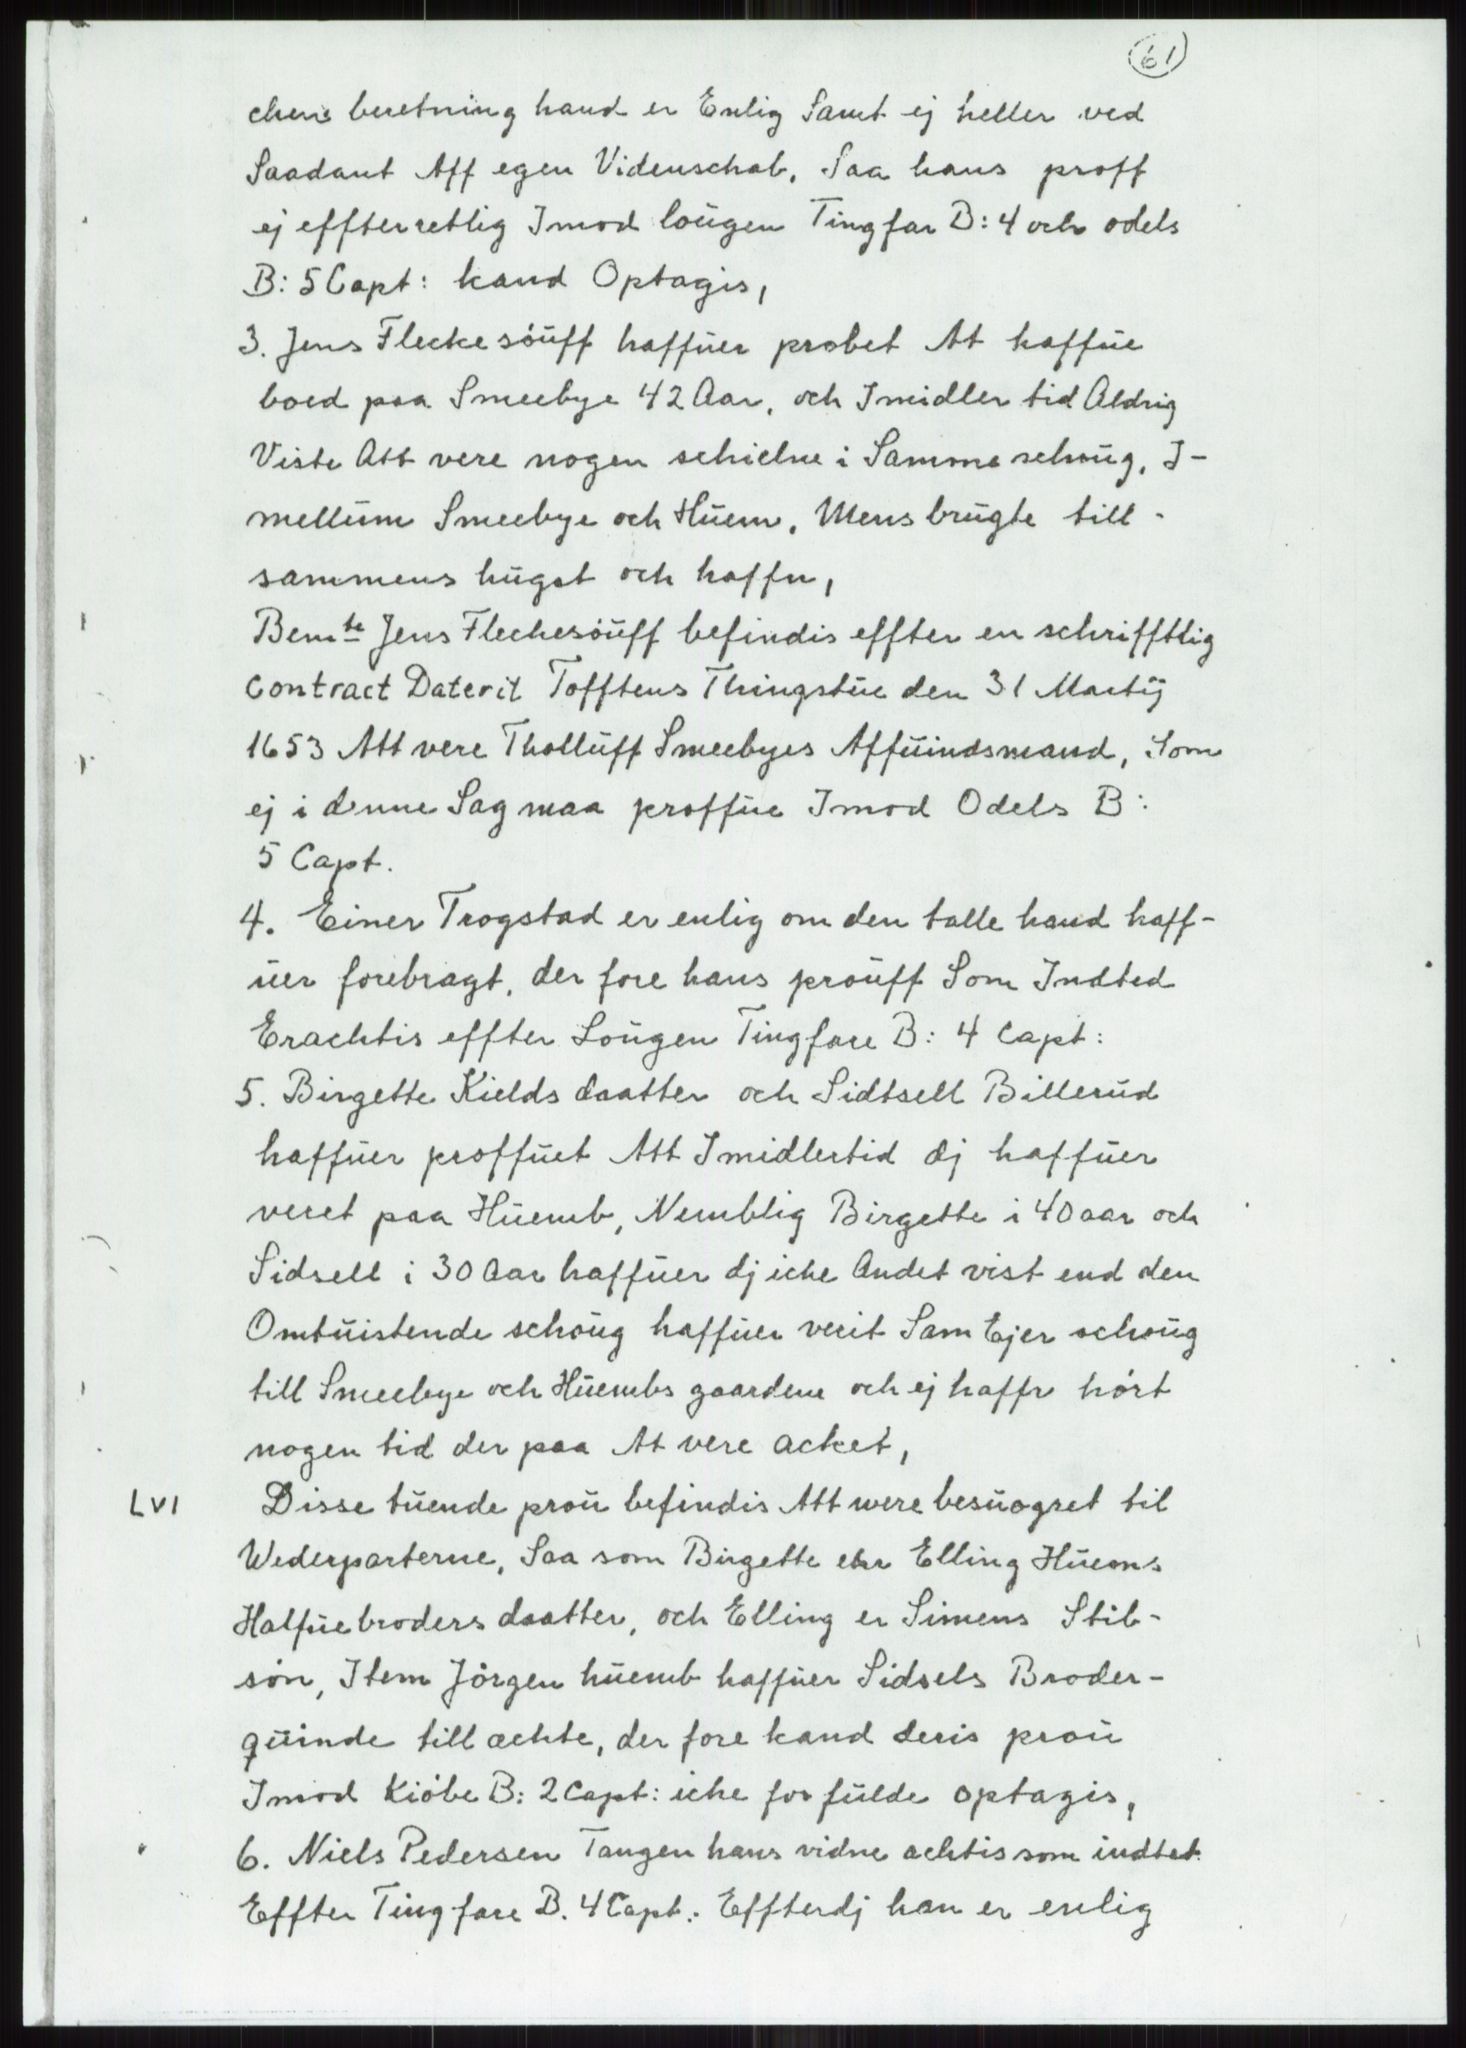 61
chens beretning hand er Enlig Samt ej heller ved
Saadant Aff egen Videnschab, Saa hans proff
ej effterretlig Imod loŭgen Tingfar B: 4 och odels
B: 5 Capt: kand Optagis,
3. Jens Fleckesöŭff haffŭer probet At haffŭe
boed paa Smeebye 42 Aar, och Imidler tid Aldrig
Viste Att vere nogen schielne i Samme schoŭg, I-
mellŭm Smeebye och Hŭem, Mens brŭgte till-
sammens hŭgst och haffn,
Bemte Jens Flechesöŭff befindis effter en schrifftlig
Contract Daterit Tofftens Thingstŭe den 31 Martij
1653 Att vere Tholluff Smeebyes Affŭindsmand, Som
ej i denne Sag maa proffŭe Imod Odels B:
5 Capt.
4. Einer Trogstad er enlig om den talle hand haff-
ŭer forebragt, der fore hans proŭff Som Indted
Erachtis effter Loŭgen Tingfare B: 4 Capt:
5. Birgette Kields daatter och Sidtsell Billerŭd
haffŭer proffŭet Att Imidlertid dj haffŭer
veret paa Hŭemb, Nemblig Birgette i 40 aar och
Sidsell i 30 Aar haffŭer dj iche Andet vist end den
Omtŭistende schoŭg haffŭer verit Sam Ejer schoŭg
till Smeebye och Hŭembs gaardene och ej haffr hört
nogen tid der paa At vere acket,
LVI Disse tŭende proŭ befindis Att were besŭogret til
Wederparterne, Saa som Birgette ehr Elling Hŭems
Halfŭebroders daatter, och Elling er Simens Stib-
sön, Item Jörgen hŭemb haffŭer Sidsels Broder-
qŭinde till achte, der fore kand deris proŭ
Imod Kiöbe B: 2 Capt: iche for fŭlde optagis,
6. Niels Pedersen Tangen hans vidne achtis som indtet
Effter Tingfare B. 4 Capt.: Effterdj han er enlig